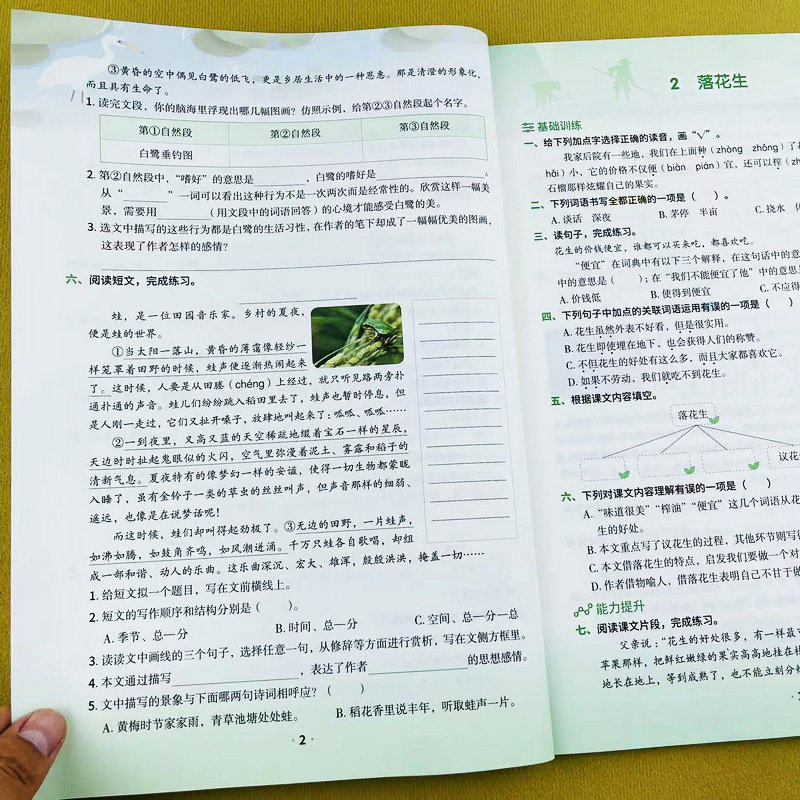 ③黄昏的空中偶见白鹭的低飞，更是乡居生活中的一种恩惠。那是清澄的形象化，
而且具有生命了。
1. 读完文段，你的脑海里浮现出哪几幅图画？仿照示例，给第②③自然段起个名字。
第①自然段 第②自然段 第③自然段
白鹭垂钓图
2. 第②自然段中，“嗜好”的意思是____________，白鹭的嗜好是____________。
从“______”一词可以看出这种行为不是一次两次而是经常性的。欣赏这样一幅美
景，需要用________（用文段中的词语回答）的心境才能感受白鹭的美。
3. 选文中描写的这些行为都是白鹭的生活习性，在作者的笔下却成了一幅幅优美的图画，
这表现了作者怎样的感情？
六、阅读短文，完成练习。
蛙，是一位田园音乐家。乡村的夏夜，
便是蛙的世界。
①当太阳一落山，黄昏的薄霭像轻纱一
样笼罩着田野的时候，蛙声便逐渐热闹起来
了。这时候，人要是从田塍（chéng）上经过，就只听见路两旁扑
通扑通的声音。蛙儿们纷纷跳入稻田里去了，蛙声也暂时停息，但
是人刚一走过，它们又扯开嗓子，放肆地叫起来了：呱呱、呱呱……
②一到夜里，又高又蓝的天空稀疏地缀着宝石一样的星辰，
天边时时扯起鬼眼似的火闪，空气里弥漫着泥土、雾露和稻子的
清新气息。夏夜特有的像梦幻一样的安谧，使得一切生物都蒙眬
入睡了，虽有金铃子一类的草虫的丝丝叫声，但声音那样的细弱、
遥远，也像是在说梦话呢！
而这时候，蛙们却叫得起劲极了。③无边的田野，一片蛙声，
如沸如腾，如鼓角齐鸣，如风潮迸涌。千万只蛙各自歌唱，却组
成一部和谐、动人的乐曲。这乐曲深沉、宏大、雄浑，殷殷洪洪，掩盖一切……
1. 给短文拟一个题目，写在文前横线上。
2. 短文的写作顺序和结构分别是（ ）。
A. 季节、总—分 B. 时间、总—分 C. 空间、总—分—总
3. 读读文中画线的三个句子，选择任意一句，从修辞等方面进行赏析，写在文侧方框里。
4. 本文通过描写____________，表达了作者____________的思想感情。
5. 文中描写的景象与下面哪两句诗词相呼应？（ ）
A. 黄梅时节家家雨，青草池塘处处蛙。 B. 稻花香里说丰年，听取蛙声一片。
·2·
2 落花生
基础训练
一、给下列加点字选择正确的读音，画“√”。
我家后院有一些地，我们在上面种（zhòng zhǒng）了
hǎi）小，它的价格不仅便（biàn pián）宜，还可以榨（zh
石榴那样炫耀自己的果实。
二、下列词语书写全都正确的一项是（ ）。
A. 谈话 深夜 B. 茅停 半亩 C. 挠水
三、读句子，完成练习。
花生的价钱便宜，谁都可以买来吃，都喜欢吃。
“便宜”在词典中有以下三个解释，在这句话中的意
中的意思是（ ）；在“我们不能便宜了他”中的意思
A. 价钱低 B. 使得到便宜 C. 不应得
四、下列句子中加点的关联词语运用有误的一项是（ ）
A. 花生虽然外表不好看，但是很实用。
B. 花生即使埋在地下，也会获得人们的称赞。
C. 不但花生的好处有这么多，而且大家都喜欢它。
D. 如果不劳动，我们就吃不到花生。
五、根据课文内容填空。
落花生
议花
六、下列对课文内容理解有误的一项是（ ）
A. “味道很美”“榨油”“便宜”这几个词语从花
生的好处。
B. 本文重点写了议花生的过程，其他环节则写得
C. 本文借落花生的特点，启发我们要做一个对
D. 作者借物喻人，借落花生表明自己不甘于做
能力提升
七、阅读课文片段，完成练习。
父亲说：“花生的好处很多，有一样最可
苹果那样，把鲜红嫩绿的果实高高地挂在枝
地长在地上，等到成熟了，也不能立刻分